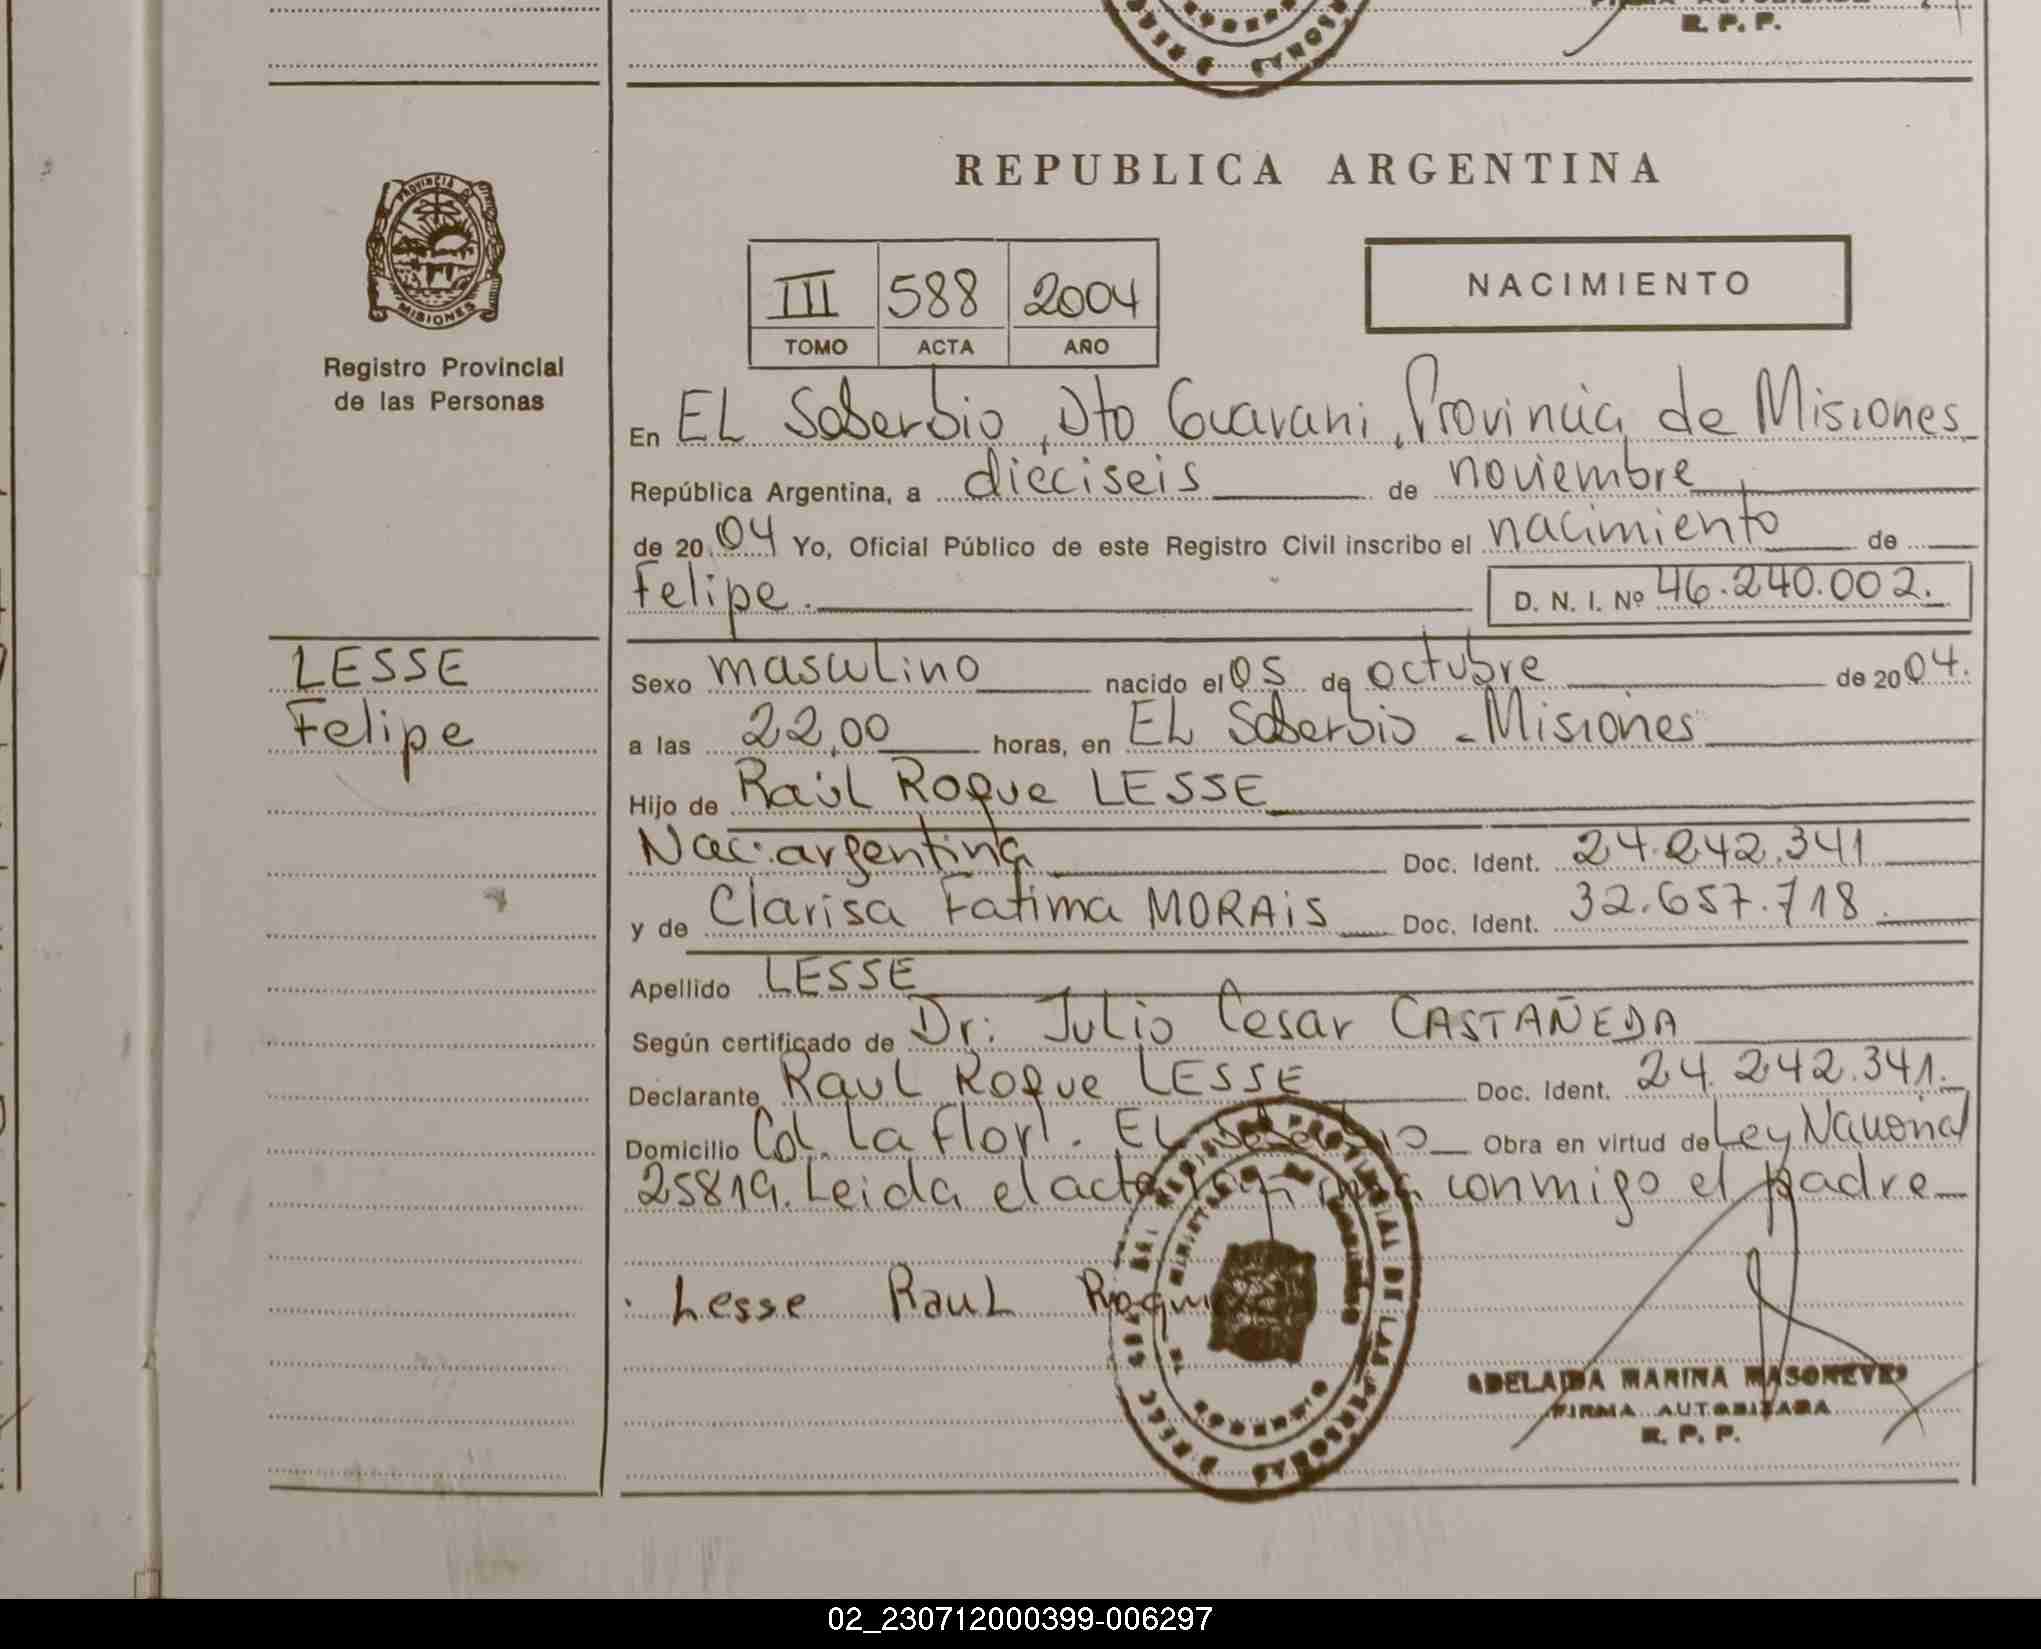 R. P. P.
PROVINCIA DE
MISIONES
Registro Provincial
de las Personas
REPUBLICA ARGENTINA
III 588 2004
TOMO ACTA AÑO
NACIMIENTO
En EL Soberbio, Dto Guarani, Provincia de Misiones
República Argentina, a dieciseis de noviembre
de 2004 Yo, Oficial Público de este Registro Civil inscribo el nacimiento de
Felipe. D. N. I. Nº 46.240.002.
LESSE
Felipe
Sexo masculino nacido el 05 de octubre de 2004.
a las 22,00 horas, en EL Soberbio - Misiones
Hijo de Raúl Roque LESSE
Nac. argentina Doc. Ident. 24.242.341
y de Clarisa Fatima MORAIS Doc. Ident. 32.657.718.
Apellido LESSE
Según certificado de Dr: Julio Cesar CASTAÑEDA
Declarante Raul Roque LESSE Doc. Ident. 24.242.341.
Domicilio Col. La Flor. EL Soberbio Obra en virtud de Ley Nacional
25819. Leida el acta firma conmigo el padre
Lesse Raul Roque
ADELAIDA MARINA
FIRMA AUTORIZADA
R. P. P.
02_230712000399-006297